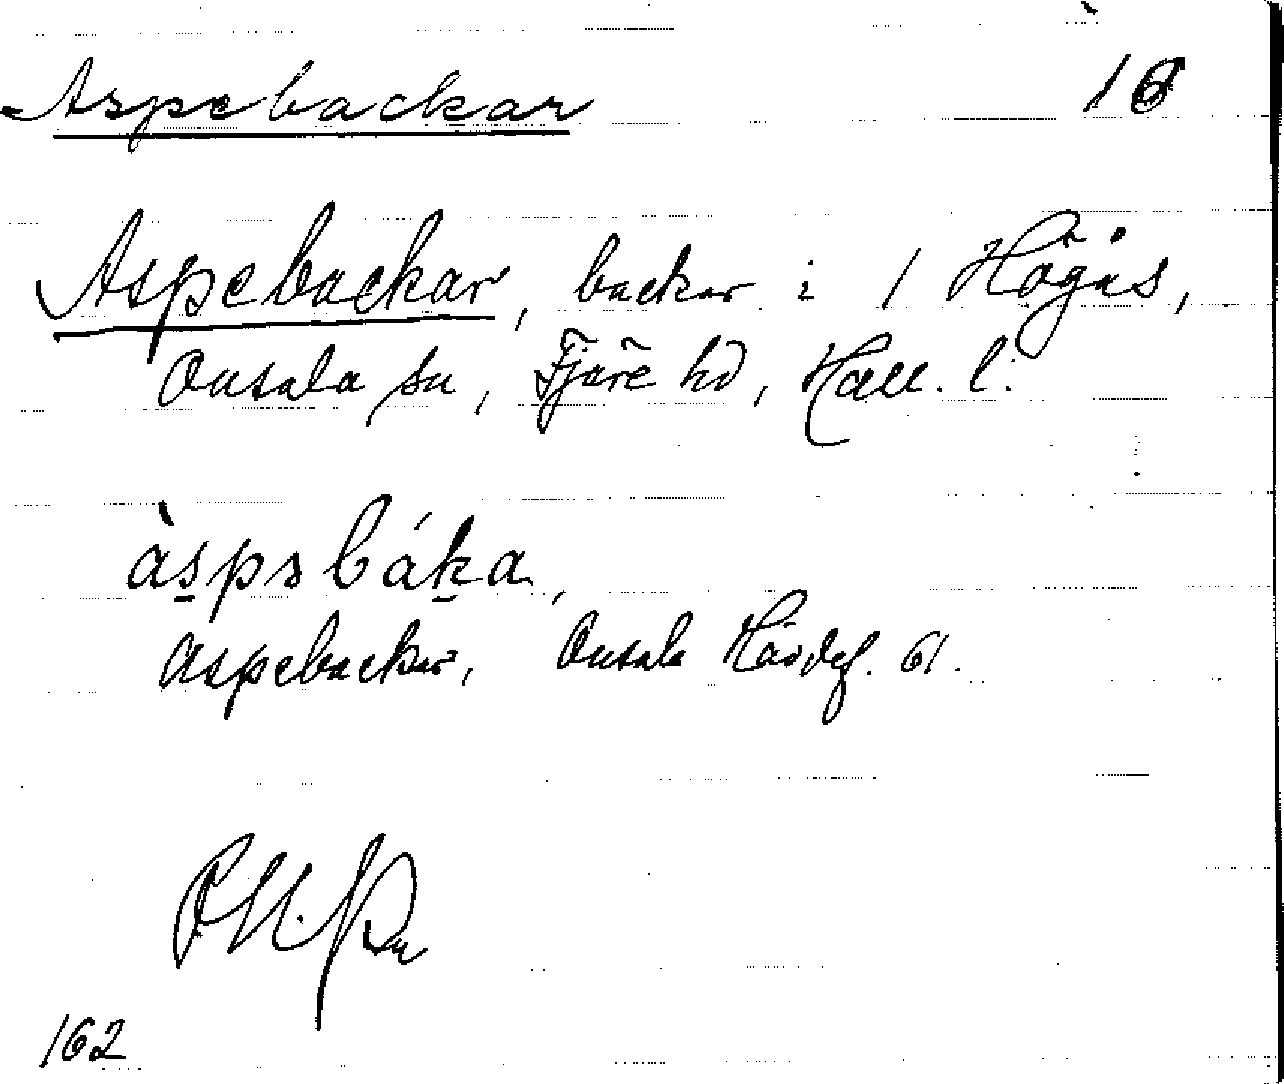 Aspebackar 16
Aspebackar, backar i 1 Högås,
Onsala sn, Fjäre hd, Hall. l.
àspsbáka,
Aspebackar, Onsala Hävdef. 61.
162